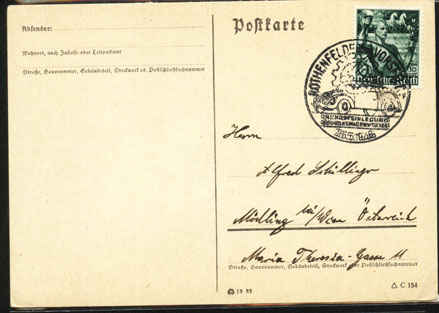 Absender:
Postkarte
Wohnort, auch Zustell- oder Leitpostamt
Straße, Hausnummer, Gebäudeteil, Stockwerk od. Postschließfachnummer
Deutsches Reich
ROTHENFELDE
GRUNDSTEINLEGUNG
26.5.1938
Herrn
Alfred Schillinger
Mödling bei/Wien Österreich
Maria Theresia-Gasse 11
Straße, Hausnummer, Gebäudeteil, Stockwerk oder Postschließfachnummer
C 154